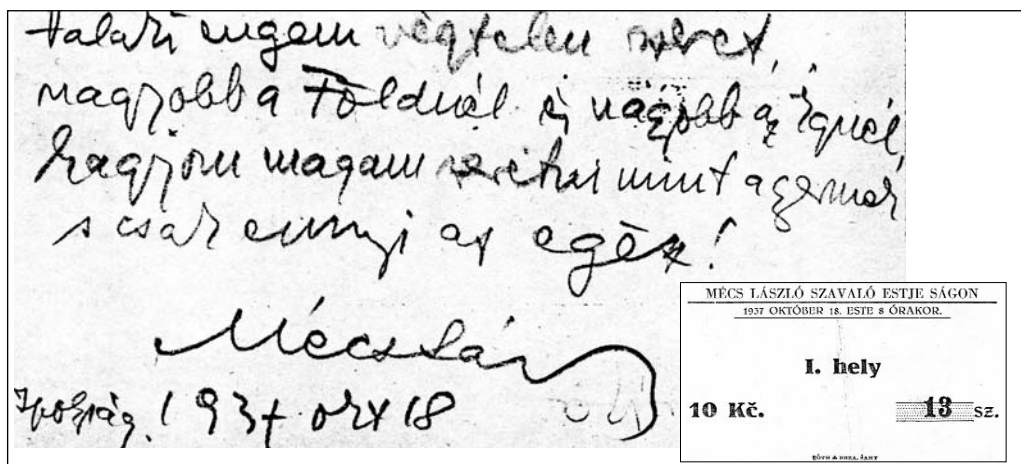 Valaki engem végtelen szeret,
nagyobb a Földnél és nagyobb az Égnél,
hagyom magam szeretni mint a gyermek
s csak ennyi az egész!
Mécs László
Ipolyság. 1937 okt 18
MÉCS LÁSZLÓ SZAVALÓ ESTJE SÁGON
1937 OKTÓBER 18. ESTE 8 ÓRAKOR.
I. hely
10 Kč. 13 SZ.